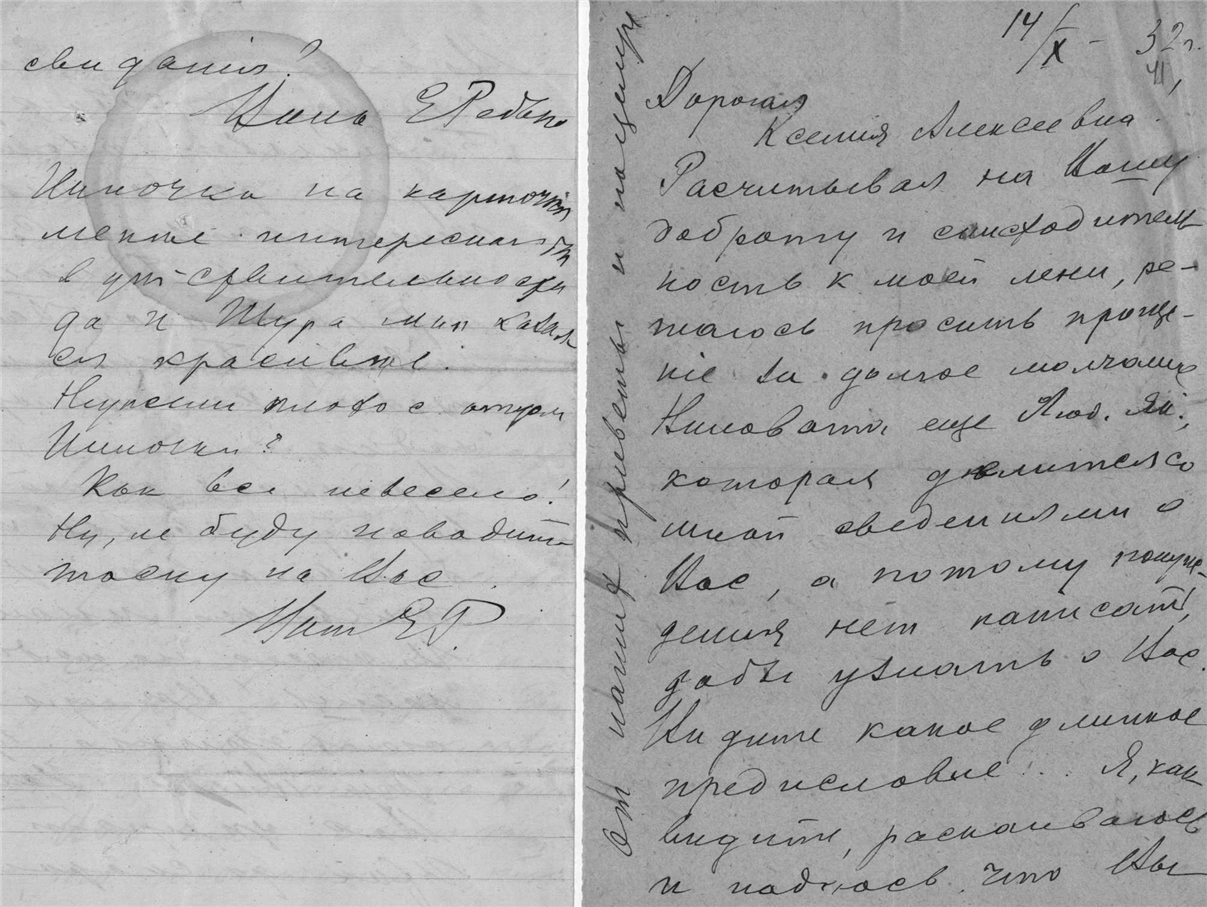 свидания?
Ваша Е Редько
Ниночка на карточке
менее интересная чем
в действительности
да и Шура мне казал
ся красивее.
Неужели плохо с отцом
Ниночки?
Как все невесело!
Ну, не буду наводить
тоску на Вас.
Ваша Е Р.
14/X - 32 г.
Дорогая
Ксения Алексеевна.
Расчитывая на Вашу
доброту и снисходитель
ность к моей лени, ре-
шаюсь просить проще-
ніе за долгое молчание
Виновата еще Люд. Як.,
которая делится со
мной сведениями о
Вас, а потому побуж-
дения нет написать,
чтобы узнать о Вас.
Видите какое длинное
предисловие... Я, как
видите, раскаиваюсь
и надеюсь, что Вы
От наших приветы и поцелуи